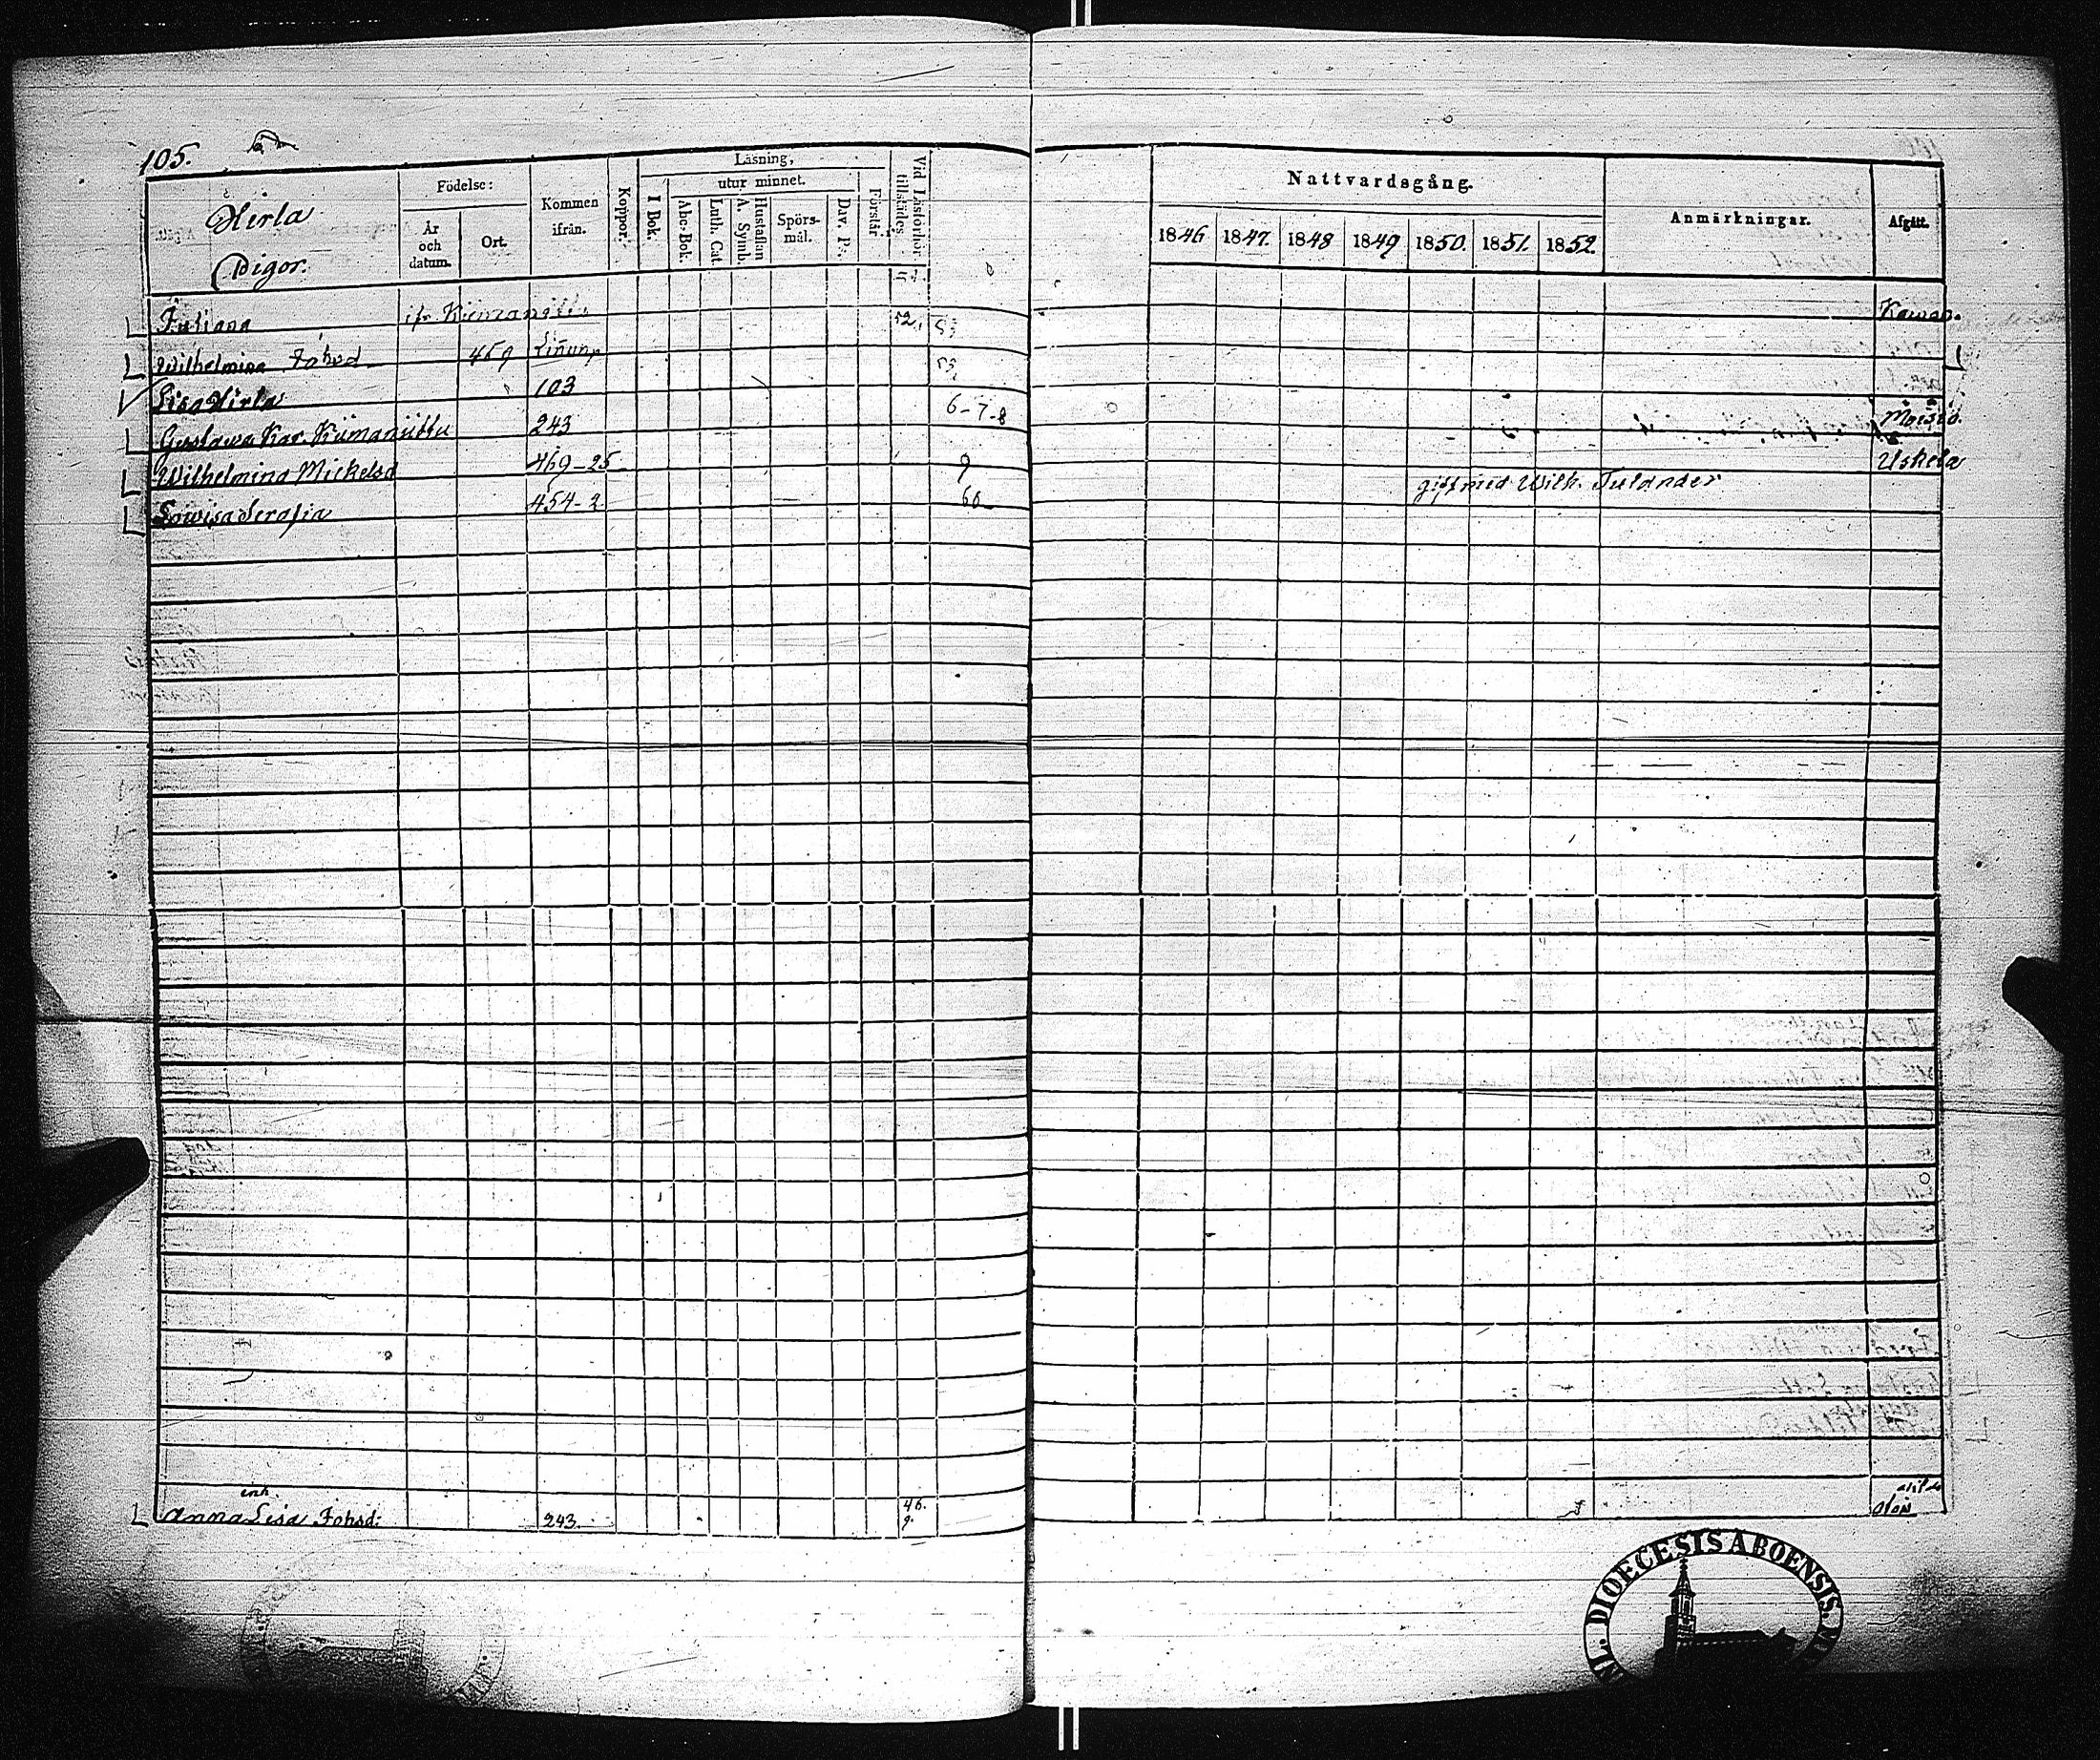 105.
Hirla
Pigor.
Födelse:
År och datum.
Ort.
Kommen ifrån.
Koppor.
Läsning,
utur minnet.
I Bok.
Abc-Bok.
Luth. Cat.
Hustaflan A. Symb.
Spörsmål.
Dav. Ps.
Förstår
Vid Läsförhör tillstädes.
Nattvardsgång.
1846 1847. 1848 1849 1850. 1851. 1852.
Anmärkningar.
Afgått.
Juliana 52. 53
Wilhelmina Johsd 469 53
Lisa Hirla 103
Gustawa Kar. 243 6-7-8
Wilhelmina Mickelsd 469-25 9 Uskela
gift med Wilh. Tulander
Lowisa Serafia 454-2 60
inh.
Anna Lisa Johsd: 243 46. 9.
DIOECESIS ABOENSIS.